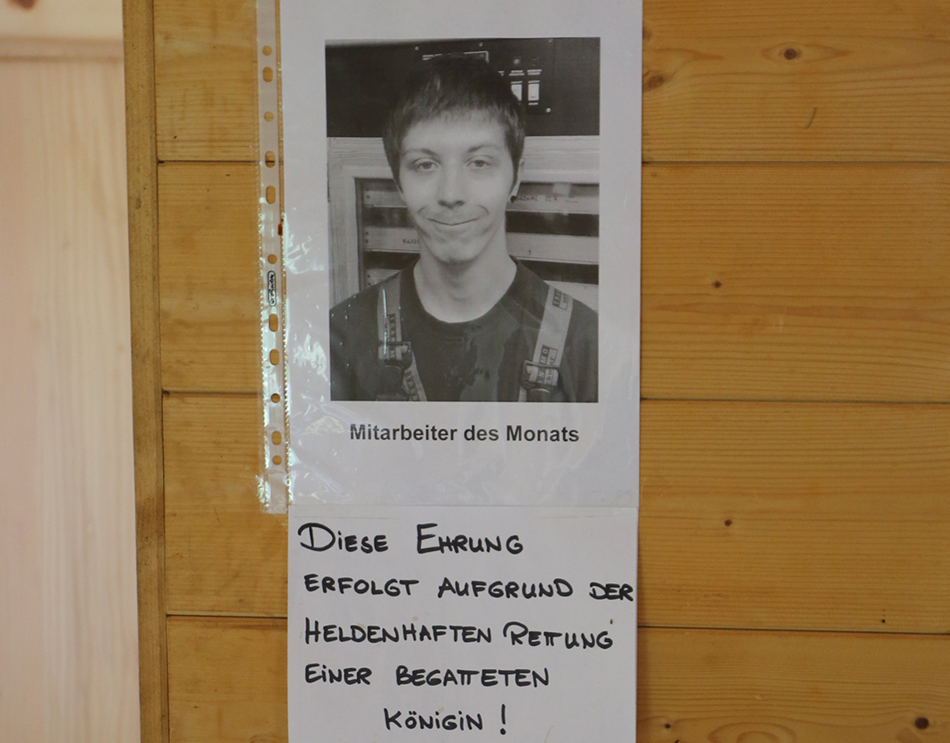 Mitarbeiter des Monats
DIESE EHRUNG
ERFOLGT AUFGRUND DER
HELDENHAFTEN RETTUNG
EINER BEGATTETEN
KÖNIGIN !